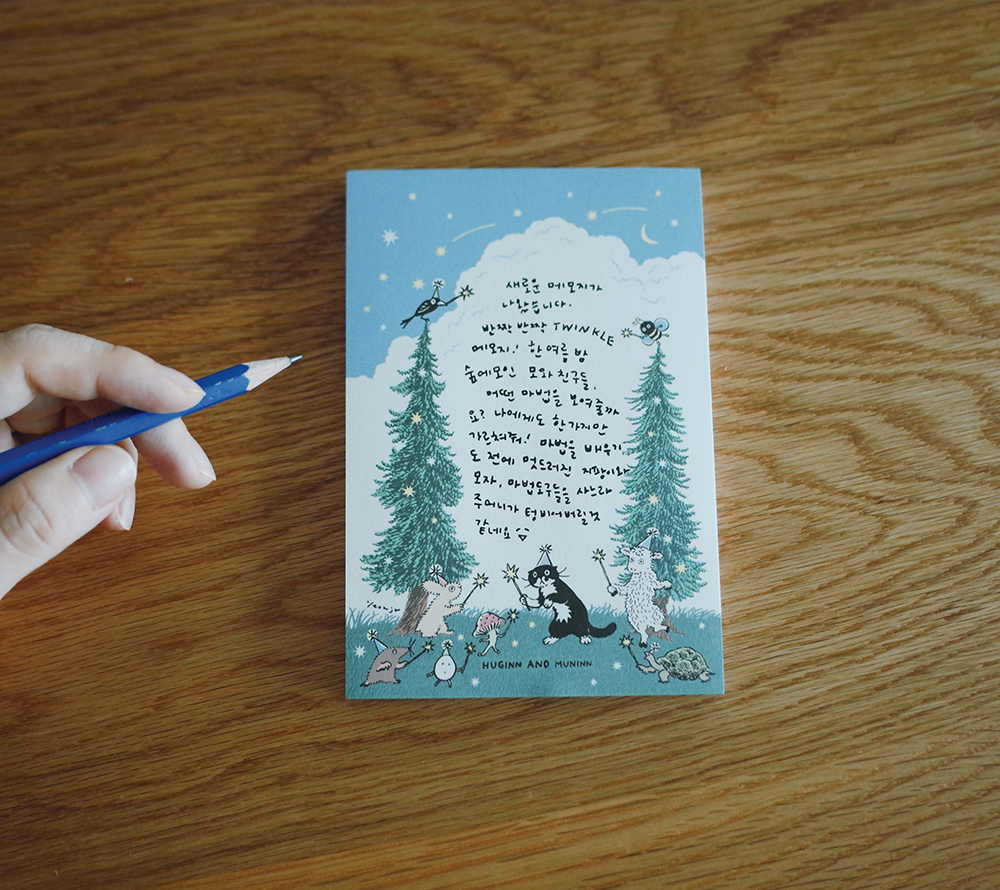 새로운 메모지가
나왔습니다.
반짝반짝 TWINKLE
메모지! 한여름 밤
숲에모인 모와친구들,
어떤 마법을 보여줄까
요? 나에게도 한가지만
가르쳐줘! 마법을 배우기
도 전에 멋드러진 지팡이와
모자, 마법도구들을 사느라
주머니가 텅비어버릴것
같네요
HUGINN AND MUNINN